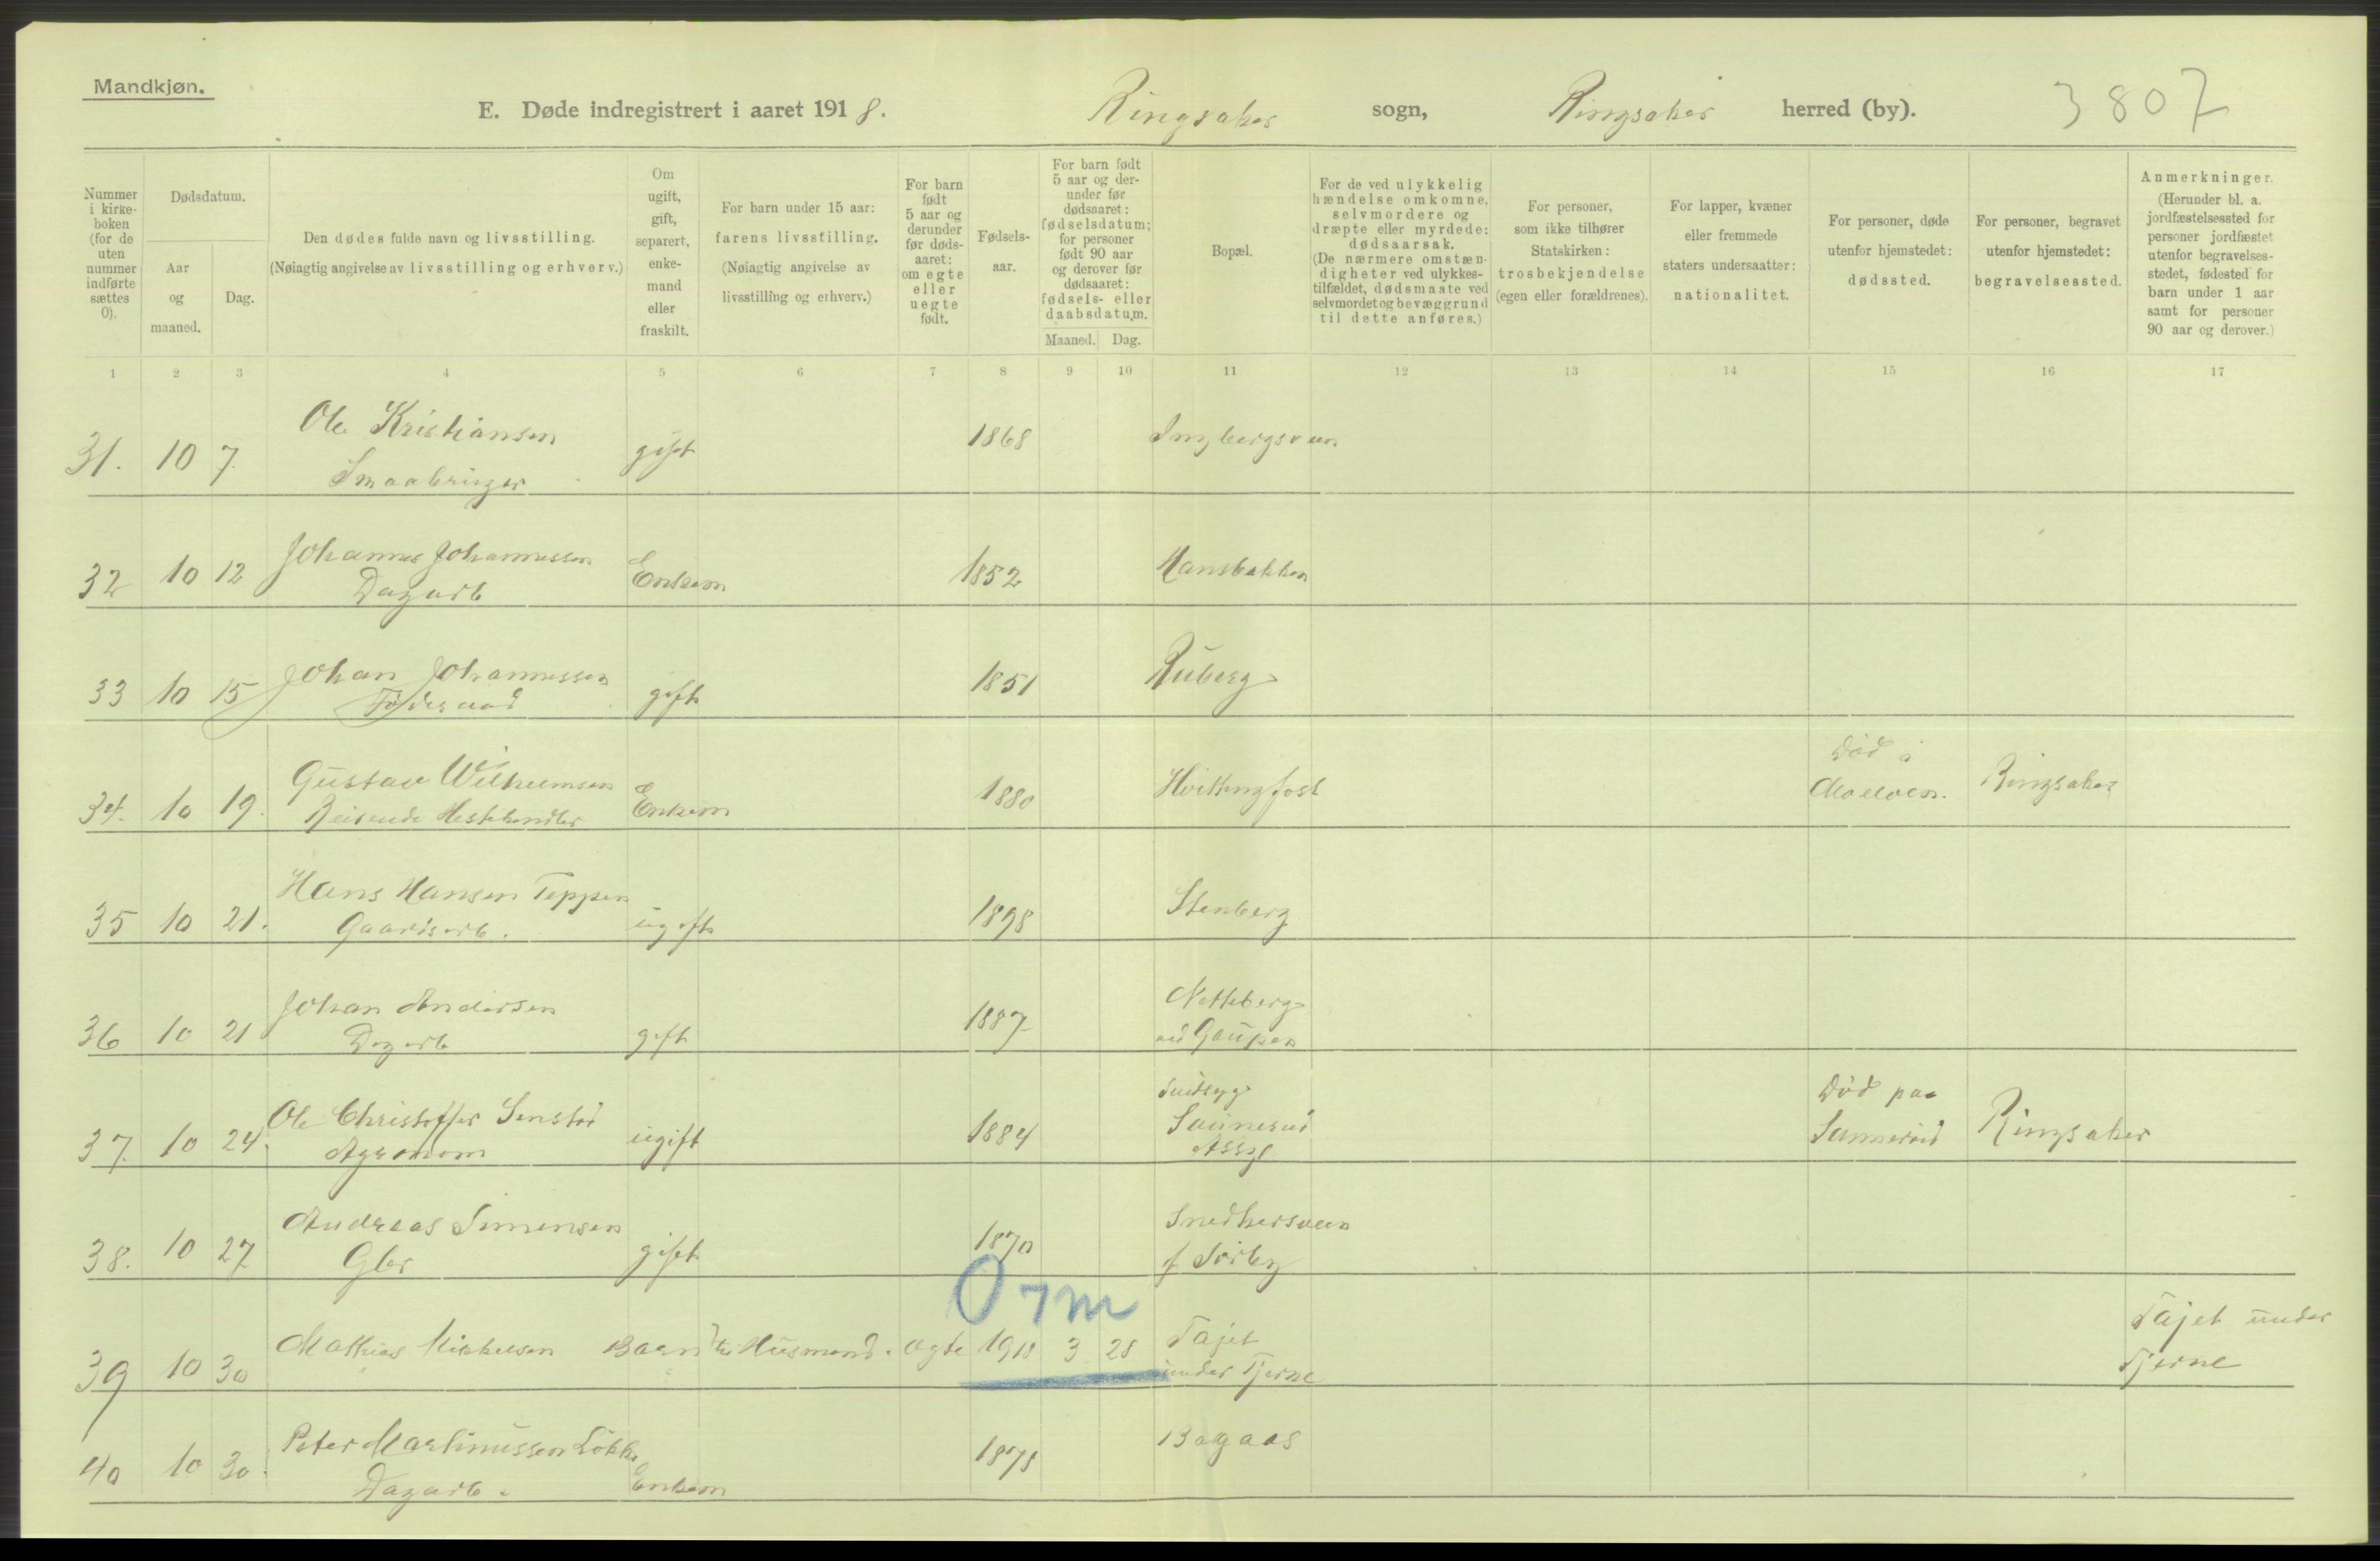 Mandkjøn.
E. Døde indregistrert i aaret 1918. Ringsaker sogn, Ringsaker herred (by). 3807
Nummer i kirke-boken (for de uten nummer indførte sættes 0).
Dødsdatum.
Aar og maaned.
Dag.
Den dødes fulde navn og livsstilling.
(Nøiagtig angivelse av livsstilling og erhverv.)
Om ugift, gift, separert, enke-mand eller fraskilt.
For barn under 15 aar: farens livsstilling.
(Nøiagtig angivelse av livsstilling og erhverv.)
For barn født 5 aar og derunder før døds-aaret: om egte eller uegte født.
Fødsels-aar.
For barn født 5 aar og der-under før dødsaaret: fødselsdatum; for personer født 90 aar og derover før dødsaaret: fødsels- eller daabsdatum.
Maaned. Dag.
Bopæl.
For de ved ulykkelig hændelse omkomne, selvmordere og dræpte eller myrdede: dødsaarsak.
(De nærmere omstæn-digheter ved ulykkes-tilfældet, dødsmaate ved selvmordet og bevæggrund til dette anføres.)
For personer, som ikke tilhører Statskirken: trosbekjendelse (egen eller forældrenes).
For lapper, kvæner eller fremmede staters undersaatter: nationalitet.
For personer, døde utenfor hjemstedet: dødssted.
For personer, begravet utenfor hjemstedet: begravelsessted.
Anmerkninger.
(Herunder bl. a. jordfæstelsessted for personer jordfæstet utenfor begravelses-stedet, fødested for barn under 1 aar samt for personer 90 aar og derover.)
1 2 3 4 5 6 7 8 9 10 11 12 13 14 15 16 17
31. 10 7. Ole Kristiansen gift 1868
Smaabruger
32 10 12 Johannes Johannessen Enkem 1852 Hansbakken
Dagarb
33 10 15 Johan Johannessen gift 1851 Ruberg
Føderaad
34. 10 19. Gustav Wilhelmsen Enkem 1880 Død i Ringsaker
Reisende Hestehandler Moelven.
35 10 21. Hans Hansen Teppen ugift 1898 Stenberg
Gaardsarb.
36 10 21 Johan Andersen gift 1887 Netteberg
Dagarb ved Gaupen
37. 10 24. Ole Christoffer Senstad ugift 1884 Sindsyg Død paa Ringsaker
Agronom Sannerud Asyl Sannerud
38. 10 27 Andreas Simensen gift 1870 Snedkersveen
Gbr f Sörby
0 7m
39 10 30 Mathias Mikkelsen Barn Husmand. egte 1918 3 28 Tajet under Tjerne Tajet under
Tjerne
40 10 30. Peter Martinussen Løkke Enkem 1878 Bagaas
Dagarb.